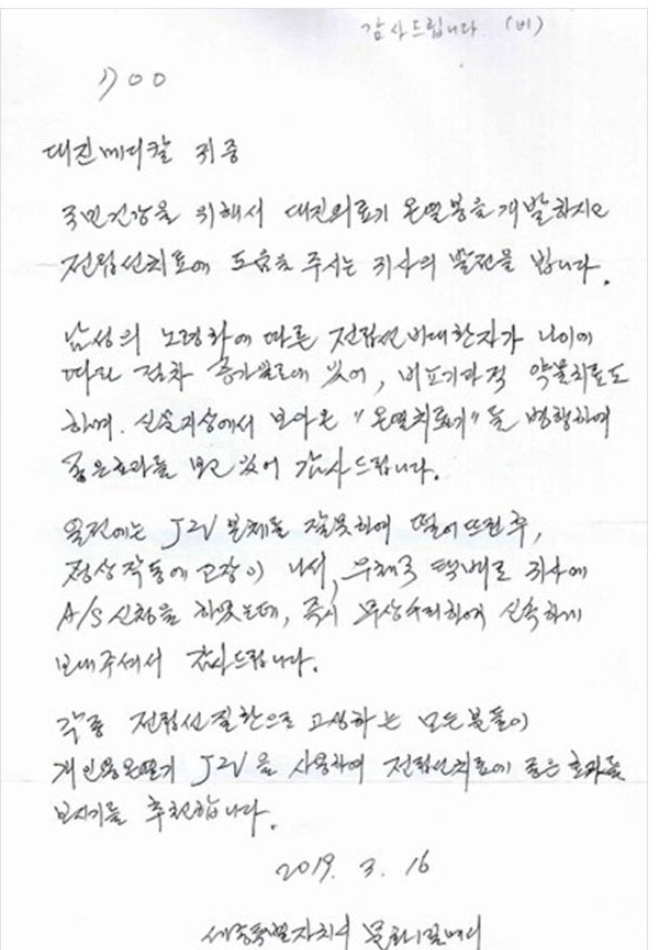 감사드립니다. (비)
1) 00
대진메디칼 귀중
국민건강을 위해서 대진의료기 온열봉을 개발하시고
전립선치료에 도움을 주시는 귀사의 발전을 빕니다.
남성의 노령화에 따른 전립선비대환자가 나이에
따라 점차 증가일로에 있어, 비뇨기과적 약물치료도
하며. 신문지상에서 보아온 "온열치료기"를 병행하여
좋은효과를 보고 있어 감사드립니다.
일전에는 J2V 본체를 잘못하여 떨어뜨린 후,
정상작동에 고장이 나서, 우체국 택배로 귀사에
A/S 신청을 하였는데, 즉시 무상수리하여 신속하게
보내주셔서 감사드립니다.
각종 전립선질환으로 고생하는 모든분들이
개인용온열기 J2V을 사용하여 전립선치료에 좋은 효과를
보시기를 추천합니다.
2019. 3. 16
세종특별자치시